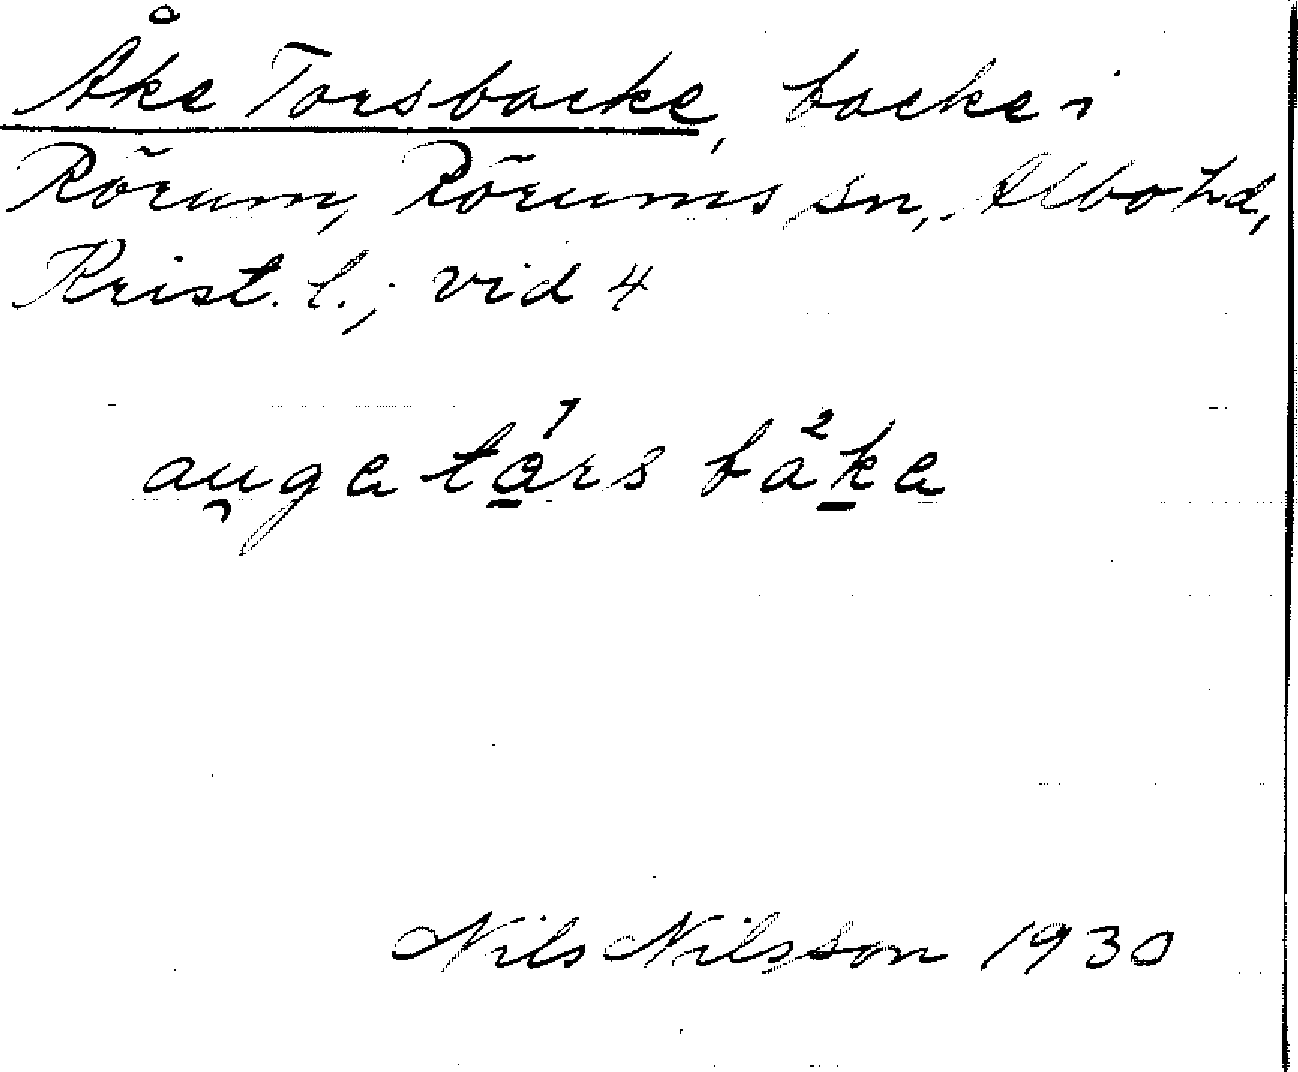 Åke Torsbacke, backe i
Rörum, Rörums sn, Albo hd,
Krist. l.; vid 4
au̯ga tå̱1rs bå2ḵa
Nils Nilsson 1930